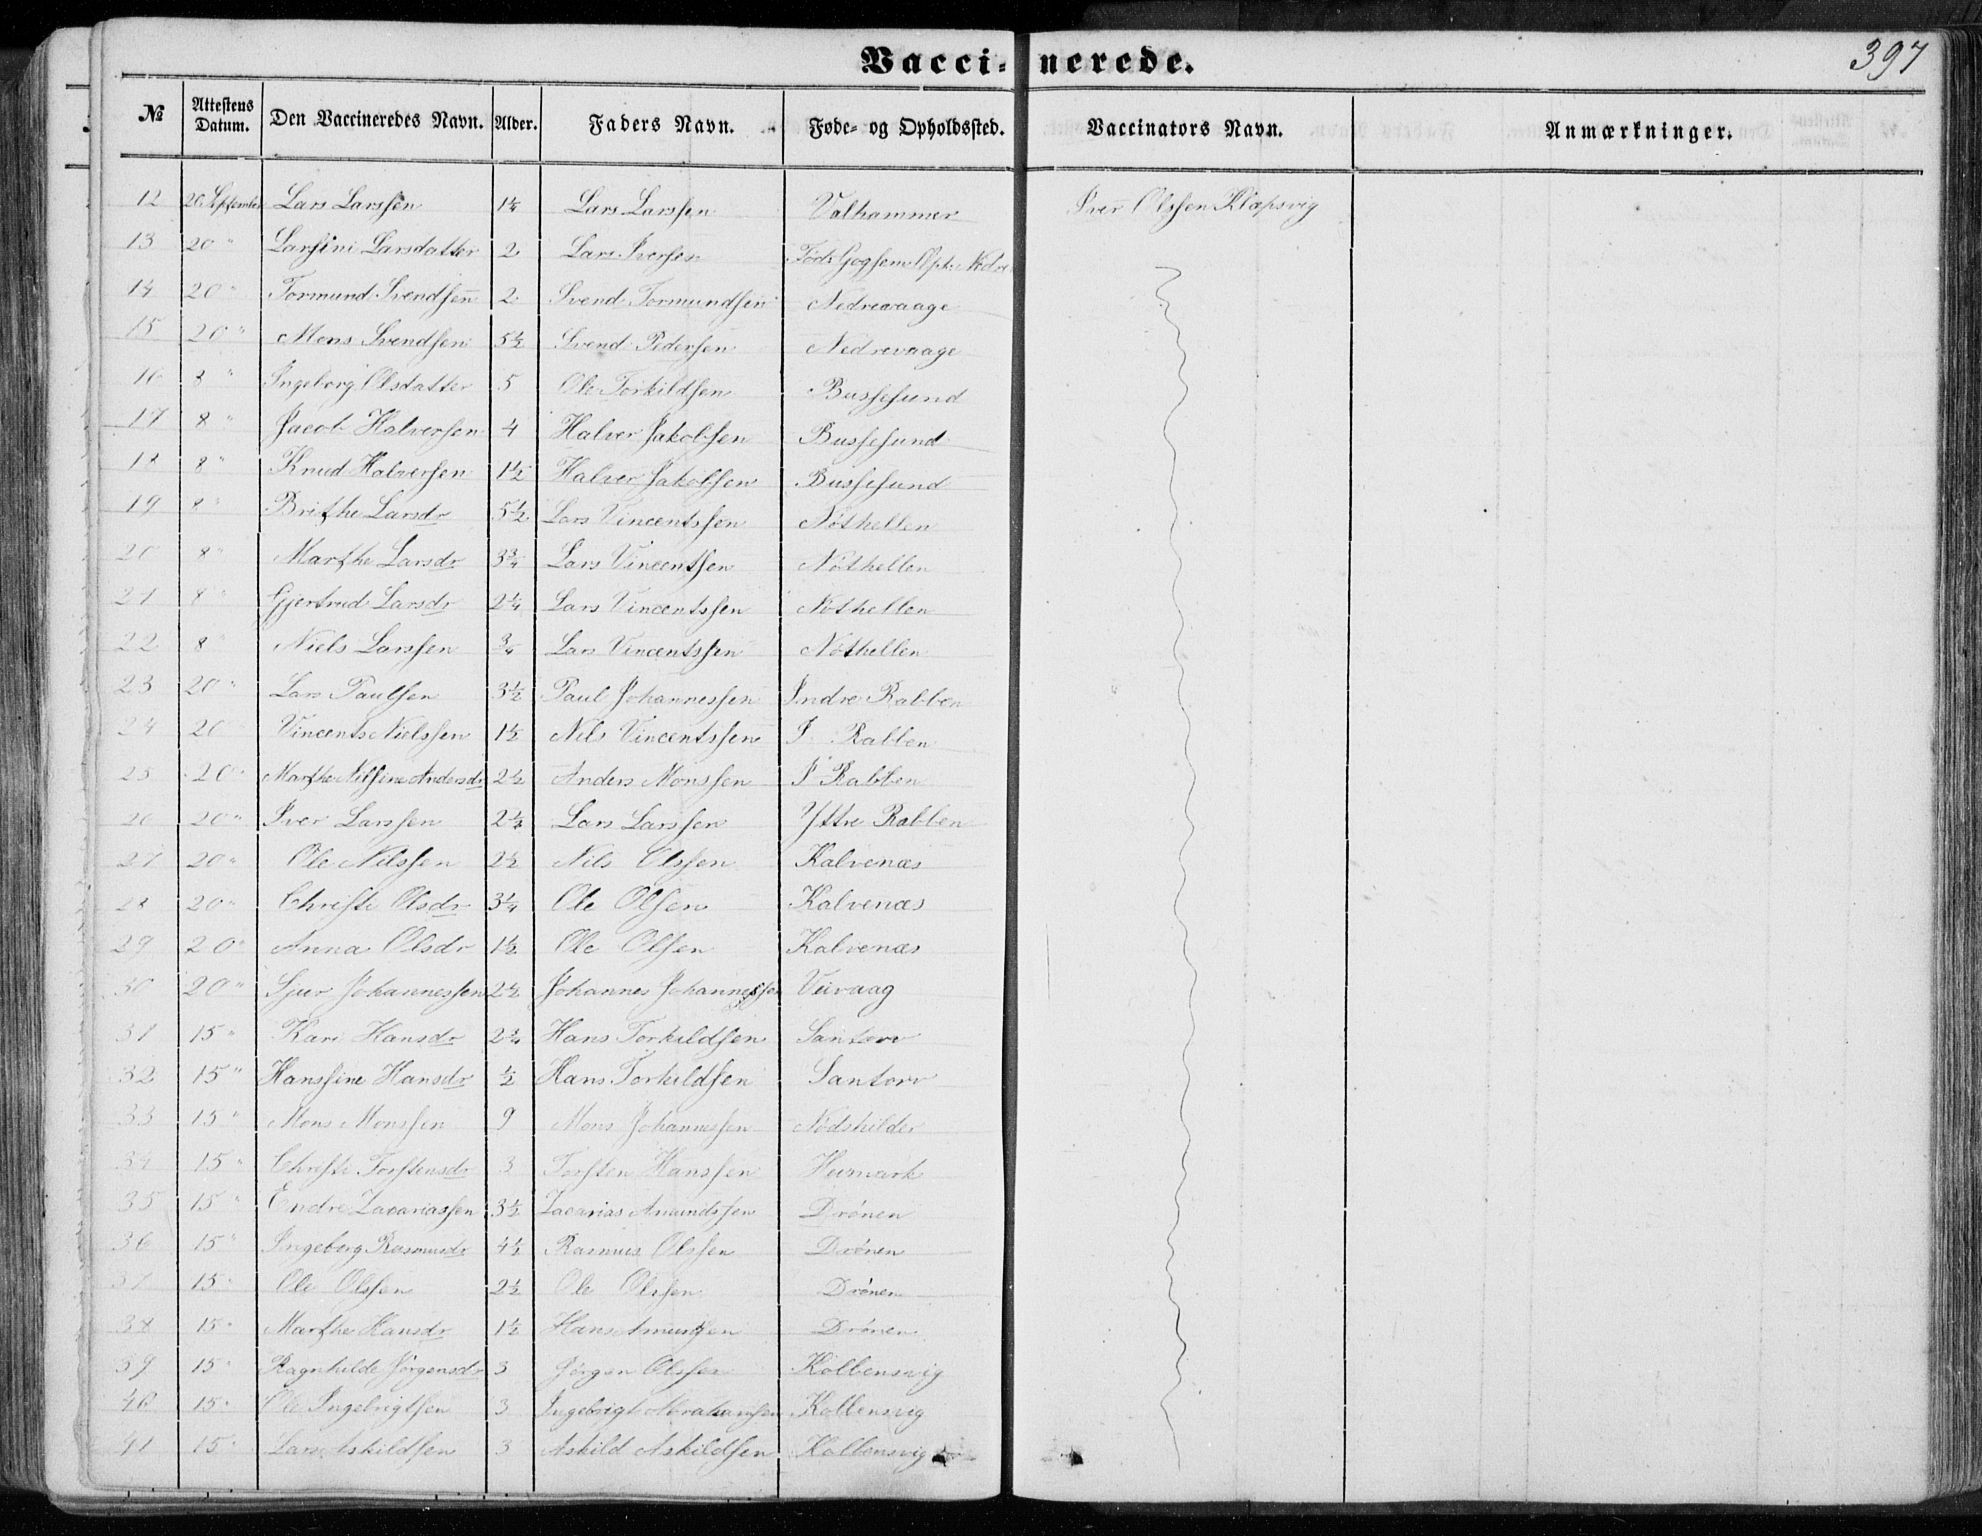 Vaccinerede.
397
№ Attestens Datum. Den Vaccineredes Navn. Alder. Faders Navn. Føde- og Opholdssted. Vaccinators Navn. Anmærkninger.
12 20 September Lars Larssen 1¼ Lars Larssen Valhammer Iver Olssen Klæpsvig
13 20 " Larsine Larsdatter 2 Lars Iversen
14 20 " Tormund Svendsen 2 Svend Tormundsen Nedrevaage
15 20 " Mons Svendsen 5½ Svend Pedersen Nedrevaage
16 8 " Ingeborg Olsdatter 5 Ole Torkildsen Bussesund
17 8 " Jacob Halversen 4 Halver Jakobsen Bussesund
18 8 " Knud Halversen 1½ Halver Jakobsen Bussesund
19 8 " Brithe Larsdr 5½ Lars Vincentssen Nøthellen
20 8 " Marthe Larsdr 3¾ Lars Vincentsen Nøthellen
21 8 " Gjertrud Larsdr 2¼ Lars Vincentssen Nøthellen
22 8 " Niels Larssen ¾ Lars Vincentssen Nøthellen
23 20 " Lars Paulsen 3½ Paul Johannessen Indre Rabben
24 20 Vincents Nielssen 1½ Nils Vincentssen I Rabben
25 20 " Marthe Nilsine Andersdr 2½ Anders Monssen I Rabben
26 20 " Iver Larssen Lars Larssen Yttre Rabben
27 20 " Ole Nilssen 2½ Nils Olssen Kalvenæs
28 20 " Christi Olsdr 3¼ Ole Olsen Kalvenæs
29 20 " Anna Olsdr 1½ Ole Olsen Kalvenæs
30 20 " Sjur Johannessen 2½ Johannes Johannessen
31 15 " Kari Hansdr 2¾ Hans Torkildsen Santorv
32 15 " Hanssine Hansdr ½ Hans Torkildsen Santorv
33 15 " Mons Monssen 9 Mons Johannessen Nødskilder
34 15 " Christi Torstensdr 3 Torsten Hanssen Heimark
35 15 " Endre Zacariassen 3½ Zacarias Amundssen Drønen
36 15 " Ingeborg Rasmusdr 4½ Rasmus Olssen Drønen
37 15 " Ole Olssen 2½ Ole Olssen Drønen
38 15 " Marthe Hansdr 1½ Hans Amundsen Drønen
39 15 " Ragnhilde Jørgensdr 3 Jørgen Olssen Kolbensvig
40 15 " Ole Ingebrigtsen 3 Ingebrigt Abrahamsen Kolbensvig
41 15 " Lars Askildsen 3 Askild Askildsen Kolbensvig